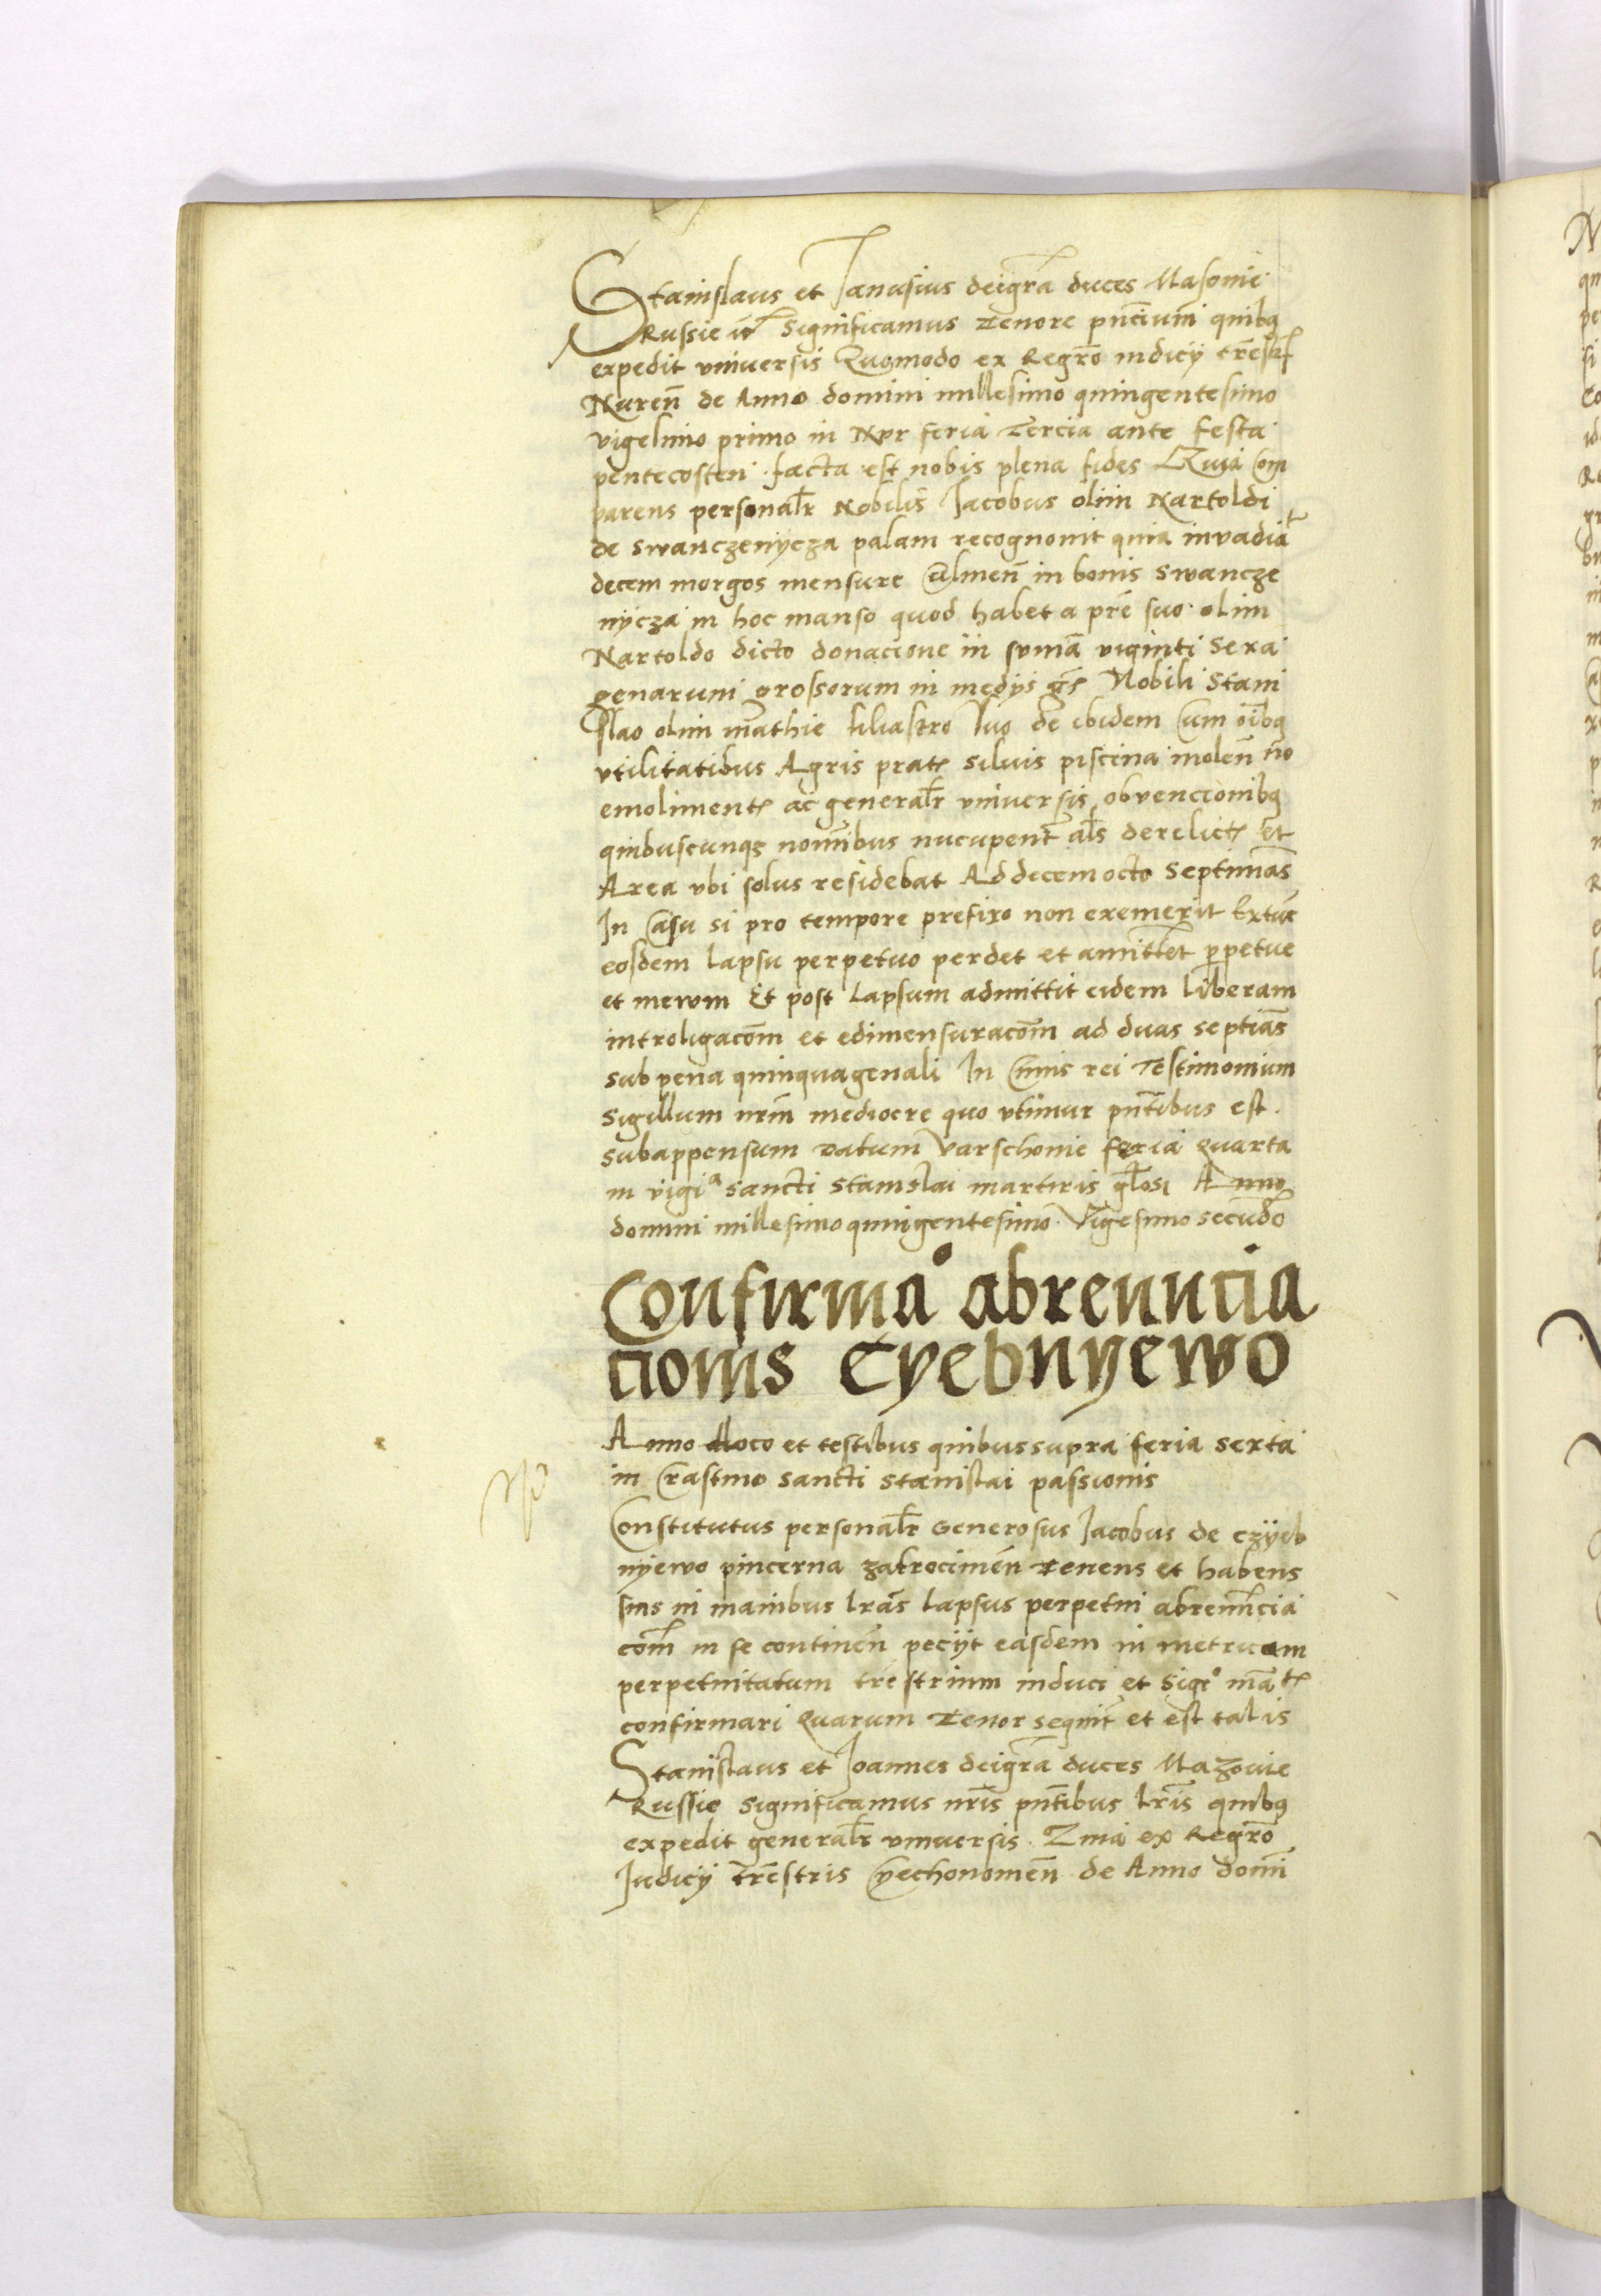 Stanislaus et Janusius deigra͞ duces Masouie
Russie Significamus Tenore pn͞cium quibꝫ
expedit vniuersis Quomodo ex Regr͞o iudicÿ tr͞estr͞
Nuren͞ de Anno domini millesimo quingentesimo
vigesimo primo in Nvr feria Tercia ante festa
pentecosten facta est nobis plena fides Quia Com
parens personal͞r Nobilis Jacobus olim Nartoldi
de Swanczenycza palam recognouit quia invadia͞t
decem morgos mensure Culmen͞ in bonis Swancze
nycza in hoc manso quod habet a pr͞e suo olim
Nartoldo dicto donacione in sum͞a viginti Sexa
genarum grossorum in medÿs gr͞s Nobili Stani
slao olim mathie filiastro suo de ibidem Cum oi͞bꝫ
vtilitatibus Agris prat͛ siluis piscina molen͞ no͞
emoliment͛ ac general͞r vniuersis obvencionibꝫ
quibuscunqꝫ nom͞ibus nucupent͞ al͞s derelict͛ Et
Area vbi solus residebat Ad decem octo Septimas͞
In Casu si pro tempore prefixo non exemerit Extu͞c
eosdem lapsu perpetuo perdet et amittet perpetue
et mere͞m Et post lapsum admittit eidem liberam
introligaco͞m et edimensuraco͞m ad duas septi͞as
sub pena quinquagenali In Cuius rei Testimonium
Sigillum nr͞m mediocre quo vtimur pn͞tibus est
subappensum Datum Varschouie feria Quarta
in vigia Sancti Stanislai martiris gl͞osi Anno
domini millesimo quingentesimo Vigesimo secu͞do
Confirmaº abrenuncia
cionis Cyebnyewo
Anno lloco et testibus quibus supra feria sexta
in Crastino Sancti Stanislai passionis
Constitutus personal͞r Generosus Jacobus de Czÿeb
nyewo pincerna zakrocimen͞ Tenens et habens
suis in manibus lr͞as lapsus perpetui abrenu͞ncia
co͞m in se continen͞ pecÿt easdem in metricam
perpetuitatum tr͞estrium induci et Sigiº ma͞t͛
confirmari Quarum Tenor sequit͞ et est talis
Stanislaus et Joannes deigra͞ duces Mazouie
Russie Significamus nr͞is pn͞tibus lr͞is quibꝫ
expedit general͞r vniuersis Quia ex Regr͞o
Judicÿ tr͞estris Cyechonomen͞ de Anno domi͞